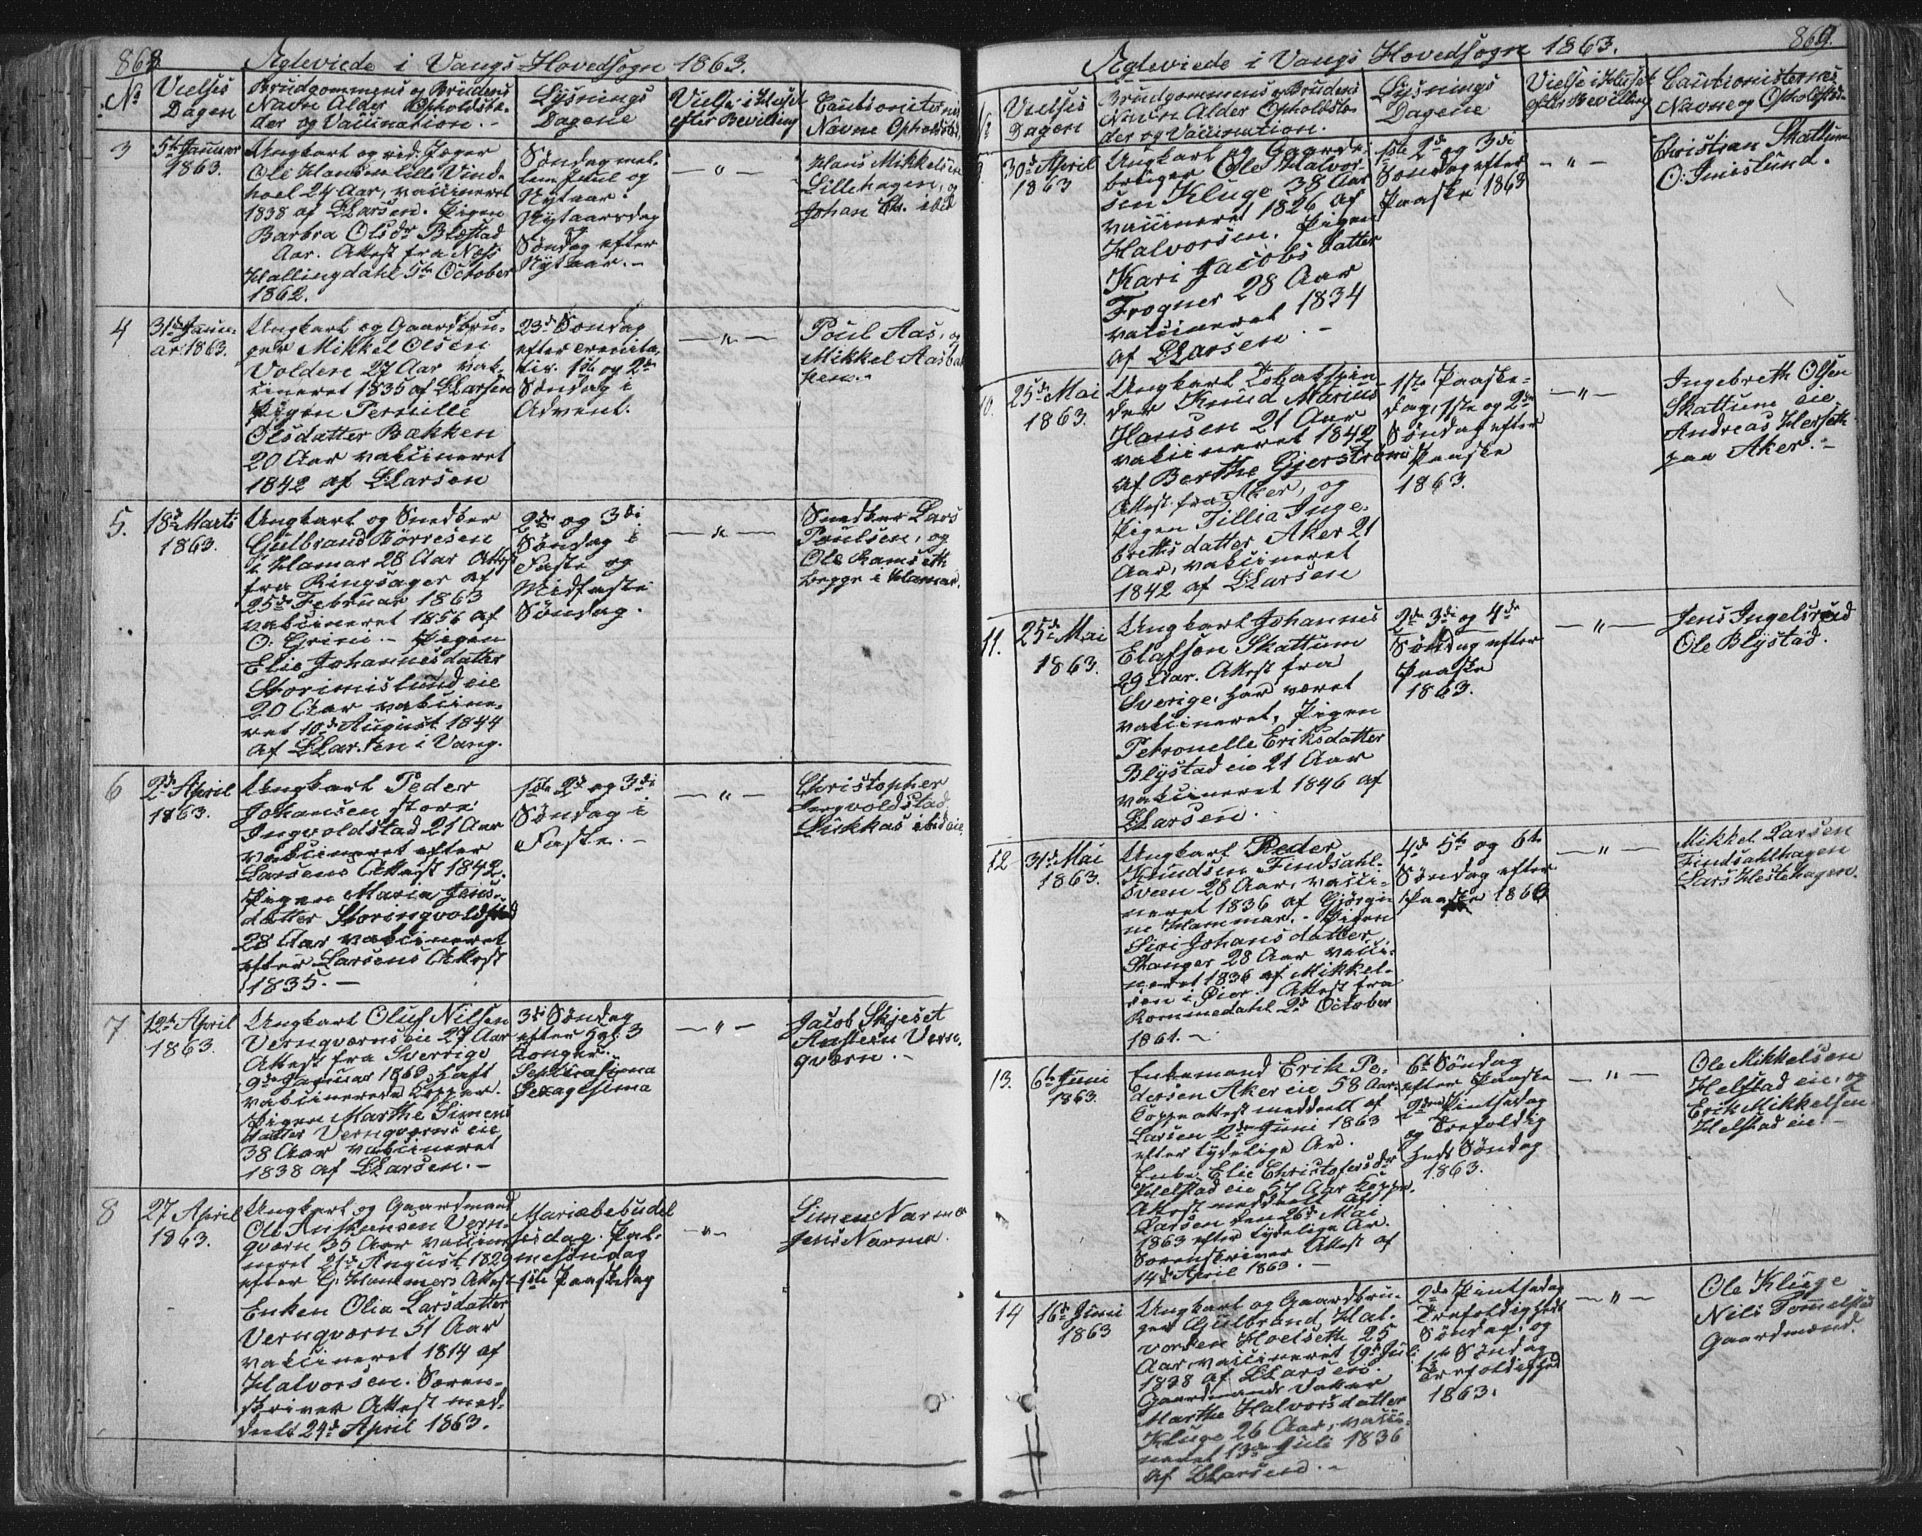 868
Ægteviede i Vangs Hovedsogn 1863.
No
Vielses Dagen
Brudgommens og Brudens
Navne Alder Opholdste-
der og Vaccination. -
Lysnings
Dagene
Vielse i Huset
efter Bevilling
Cautionisternes
Navne Opholdssted
3
5te Januar
1863.
Ungkarl og rid. Jæger
Ole Hansen Lille Vind-
hoel 24 Aar, vaccineret
1838 af LLarsen. Pigen
Barbra Olsdr Blæstad
Aar. Attest fra Næss
Hallingdahl 5te October
1862.
Søndag mel-
lem Juul og
Nytaar.
Nytaarsdag
Søndag efter
Nytaar. -
- " -
Hans Mikkelsen
Lillehagen, og
Johan Chr. ibid
4
31te Janu-
ar 1863.
Ungkarl og Gaardbru-
ger Mikkel Olsen
Volden 27 Aar vac-
cineret 1835 af LLarsen
Pigen Pernille
Olsdatter Bakken
20 Aar vaccineret
1842 af LLarsen
23de Søndag
efter Trenita-
tis. 1ste og 2den
Søndag i
Advent.
- " -
Poul Aas, og
Mikkel Aasbak-
ken. -
5.
18de Marts
1863.
Ungkarl og Snedker
Gulbrand Børresen
i Hamar 28 Aar Attest
fra Ringsager af
25de Februar 1863
vaccineret 1856 af
O. Grini. - Pigen
Elie Johannesdatter
Storimislund eie
20 Aar vaccine-
ret 10de August 1844
af LLarsen i Vang.
2den og 3die
Søndag i
Faste og
Midfaste
Søndag.
- " -
Snedker Lars
Poulsen, og
Ole Ramseth
begge i Hamar.
6
2den April
1863.
Ungkarl Peder
Johansen store
Ingvoldstad 21 Aar
vaccineret efter
Larsens Attest 1842.
Pigen Maria Jens-
datter Storengvoldstad
28 Aar vaccineret
efter Larsens Attest
1835. -
1ste 2den og 3die
Søndag i
Faste. -
- " -
Christopher
Ingvoldstad
Lukkas ibid eie
7
12te April
1863.
Ungkarl Oluf Nilsen
Vernqværns eie 27 Aar
Attest fra Sverrige
9de Januar 1863 haft
vaccinerede Kopper.
Pigen Marthe Simens
datter Vernqværns eie
38 Aar vaccineret
1838 af LLarsen. -
3die Søndag
efter Hgl. 3
Konger.
Septuagesima
Sexagesima
- " -
Jacob Skjeset
Anstern Vern-
qværn. -
8
27 April
1863.
Ungkarl og Gaardmand
Ole Anstensen Vern-
qværn 35 Aar vaccine
neret 21de August 1829
efter G. Hammers Attest
Enken Olia Larsdatter
Vernqværn 51 Aar
vaccineret 1814 af
Halvorsen. Soren-
skriver Attest med-
delt 24de April 1863.
Mariæbebudel
sesdag. Pal-
mesøndag
1ste Paaskedag
- " -
Simen Narmo
Jens Narmo.
869.
Ægteviede i Vangs Hovedsogn 1863.
No
Vielses
Dagen
Brudgommens og Brudens
Navne Alder Opholdste-
der og Vaccination.
Lysnings
Dagene
Vielse i Huset
efter Bevilling
Cautionisternes
Navne og Opholdste-
9
30te April
1863
Ungkarl og Gaard-
bruger Ole Halvor-
sen Kluge 38 Aar
vaccineret 1826 af
Halvorsen. Pigen
Kari Jacobsdatter
Frogner 28 Aar
vaccineret 1834
af LLarsen. -
1ste 2den og 3die
Søndag efter
Paaske 1863
- " -
Christian Skattum
O. Imislund.
10.
25de Mai
1863.
Ungkarl Tobatspin
der Knud Marius
Hansen 21 Aar
vaccineret 1842
af Berthe Gjerstrøm
Attest fra Aker, og
Pigen Tillia Inge-
brethsdatter Aker 21
Aar, vaccineret
1842 af LLarsen
1ste Paaske-
dag, 1ste og 2den
Søndag efter
Paaske
1863.
- " -
Ingebreth Olsen
Skattum eie
Andreas Herseth
paa Aker. -
11.
25de Mai
1863.
Ungkarl Johannes
Elafson Skattum
29 Aar. Attest fra
Sverige, har været
vaccineret, Pigen
Petronelle Eriksdatter
Blystad eie 21 Aar
vaccineret 1846 af
LLarsen.
2den 3die og 4de
Søndag efter
Paaske
1863.
- " -
Jens Ingelsrud
Ole Blystad.
12
31te Mai
1863.
Ungkarl Peder
Knudsen Findsahl-
sveen 28 Aar, vacci-
neret 1836 af Gjørgi-
ne Hammar. - Pigen
Siri Johansdatter
Stanger 28 Aar vacci-
neret 1836 af Mikkel-
sen i Øier. Attest fra
Rommedahl 2den October
1861. -
4de 5te og 6te
Søndag efter
Paaske 1863
- " -
Mikkel Larsen
Findsahlhagen
Lars Hestehagen.
13.
6te Juni
1863.
Enkemand Erik Pe-
dersen Aker eie 58 Aar
Koppeattest meddeelt af
Larsen 2den Juni 1863
efter tydelige Ar.
Enke Elie Christofersdr
Helstad eie 57 Aar koppe-
Attest meddeelt af
Larsen den 26de Mai
1863 efter tydelige Ar.
Sorenskriver Attest af
14de April 1863. -
6te Søndag
efter Paaske
2den Pintsedag
og Trefoldig
heds Søndag
1863.
- " -
Ole Mikkelsen
Helstad eie, og
Erik Mikkelsen
Helstad eie. -
14
16de Juni
1863
Ungkarl og Gaardbru-
ger Gulbrand Hal-
vorsen Hoelseth 25
Aar, vaccineret 19de Juli
1838 af LLarsen.
Gaardmands Datter
Marthe Halvorsdatter
Kluge 26 Aar, vacci-
neret 13de Juli 1836
af LLarsen. -
2den Pintsedag
Trefoldigheds
Søndag, og
1ste Søndag
Trefoldighed
1863.
- " -
Ole Kluge
Nils Tommelstad
Gaardmænd.